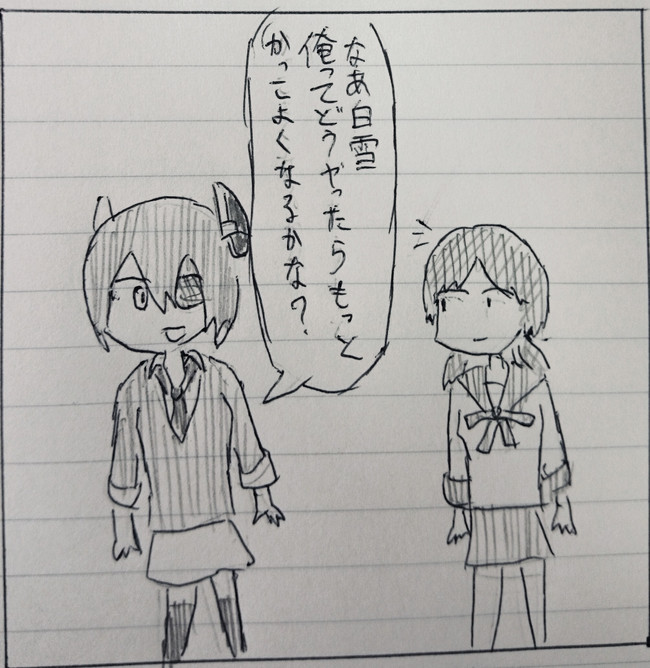 なあ白雪
俺ってどうやったらもっと
かっこよくなるかな？